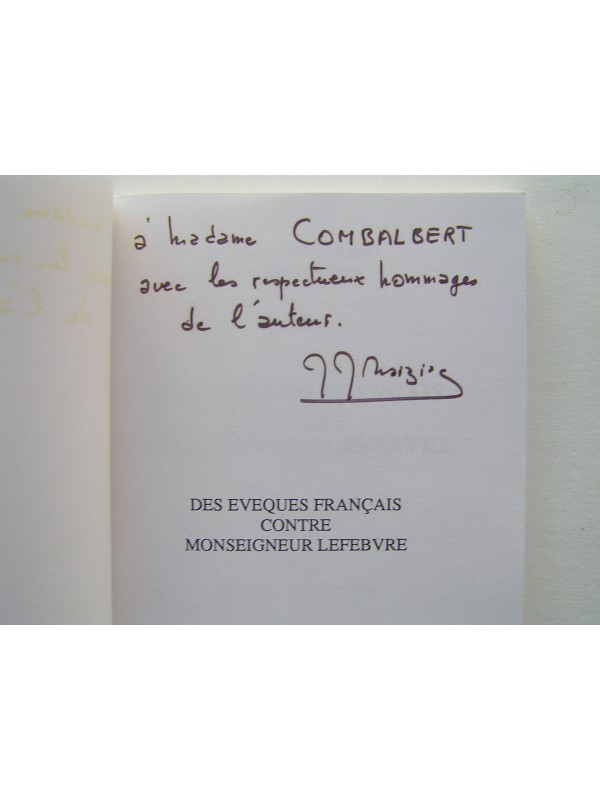 à Madame COMBALBERT
avec les respectueux hommages
de l'auteur.
DES EVEQUES FRANÇAIS
CONTRE
MONSEIGNEUR LEFEBVRE